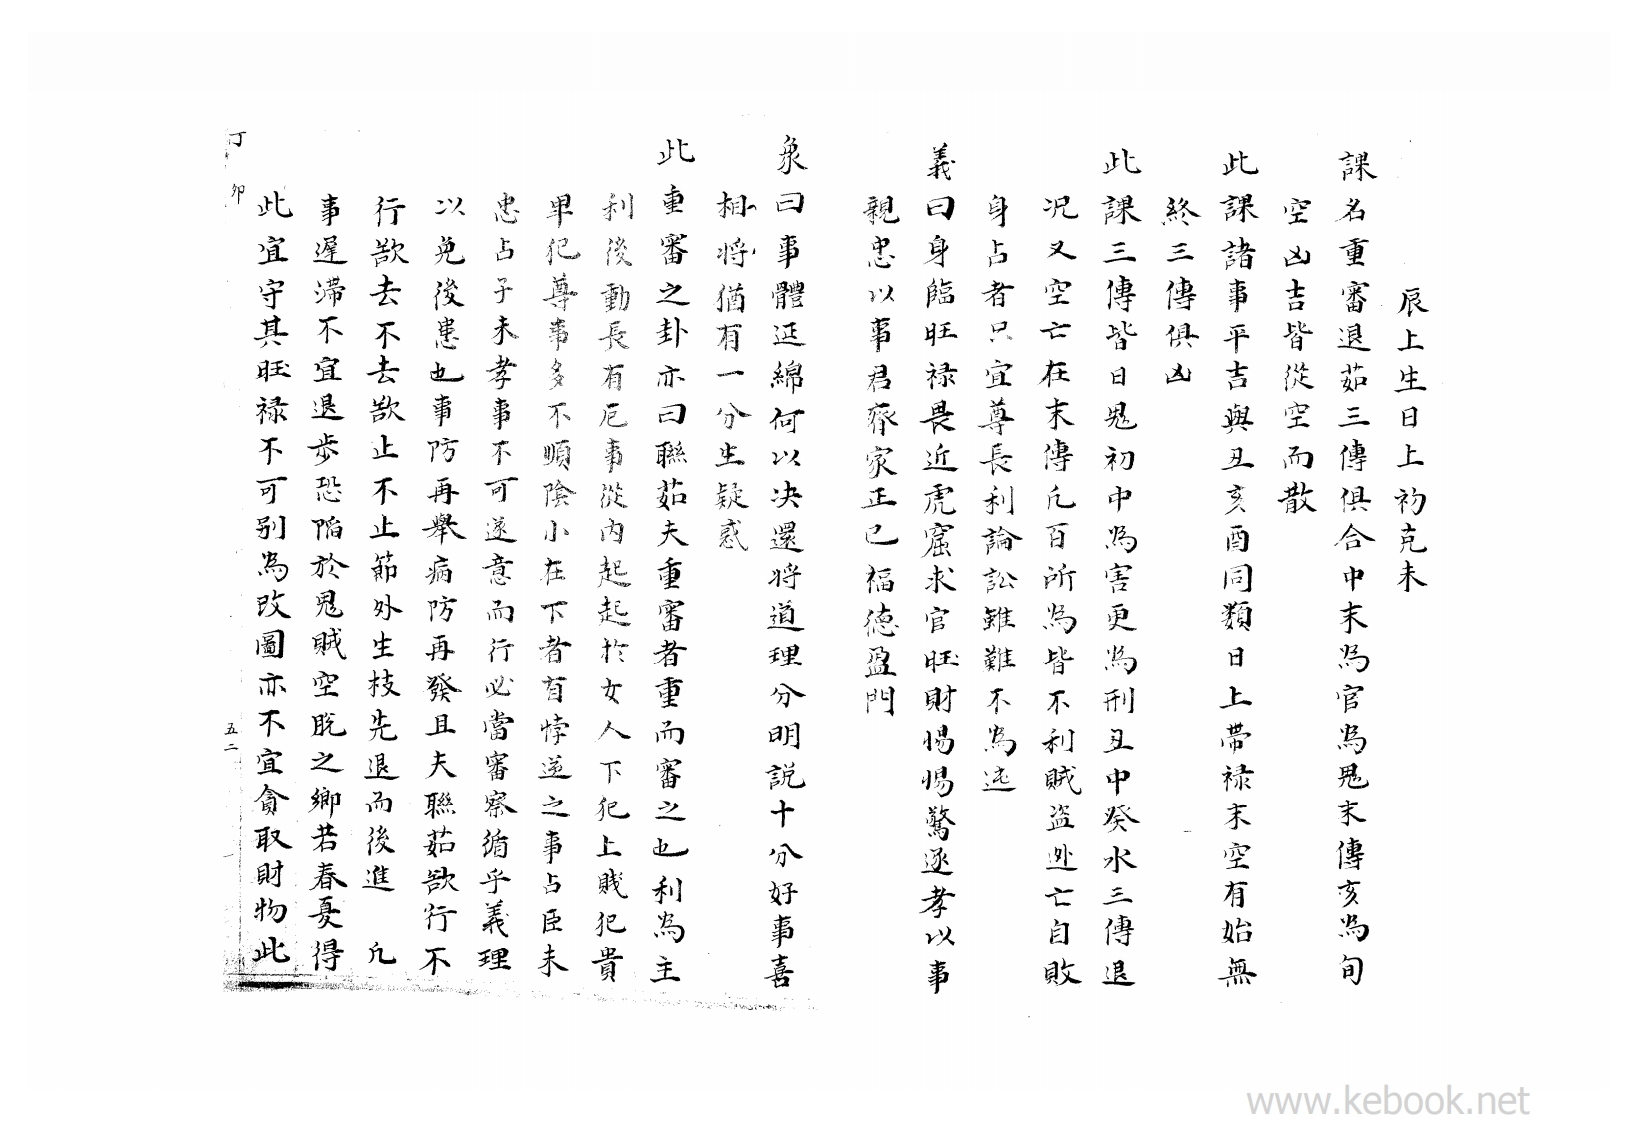 辰上生日上初克末
課名重審退茹三傳俱合中末為官為鬼末傳亥為旬
空凶吉皆從空而散
此課諸事平吉與丑亥酉同類日上帶禄末空有始無
終三傳俱凶
此課三傳皆日鬼初中為害更為刑丑中癸水三傳退
况又空亡在末傳凡百所為皆不利賊盜逃亡自敗
身占者只宜尊長利論訟雖難不為迍
義曰身臨旺禄畏近虎窟求官旺財惕惕驚逐孝以事
親忠以事君齊家正已福德盈門
象曰事體延綿何以决還将道理分明説十分好事喜
相将猶有一分生疑惑
此重審之卦亦曰聯茹夫重審者重而審之也利為主
利後動長有厄事從内起起於女人下犯上賤犯貴
卑犯尊事多不順陰小在下者有悖逆之事占臣未
忠占子未孝事不可遂意而行必當審察循乎義理
以免後患也事防再舉病防再發且夫聯茹欲行不
行欲去不去欲止不止節外生枝先退而後進 凡
事遲滞不宜退步恐陷於鬼賊空脱之鄉若春夏得
此宜守其旺禄不可别為改圖亦不宜貪取財物此
丁卯
五二
www.kebook.net